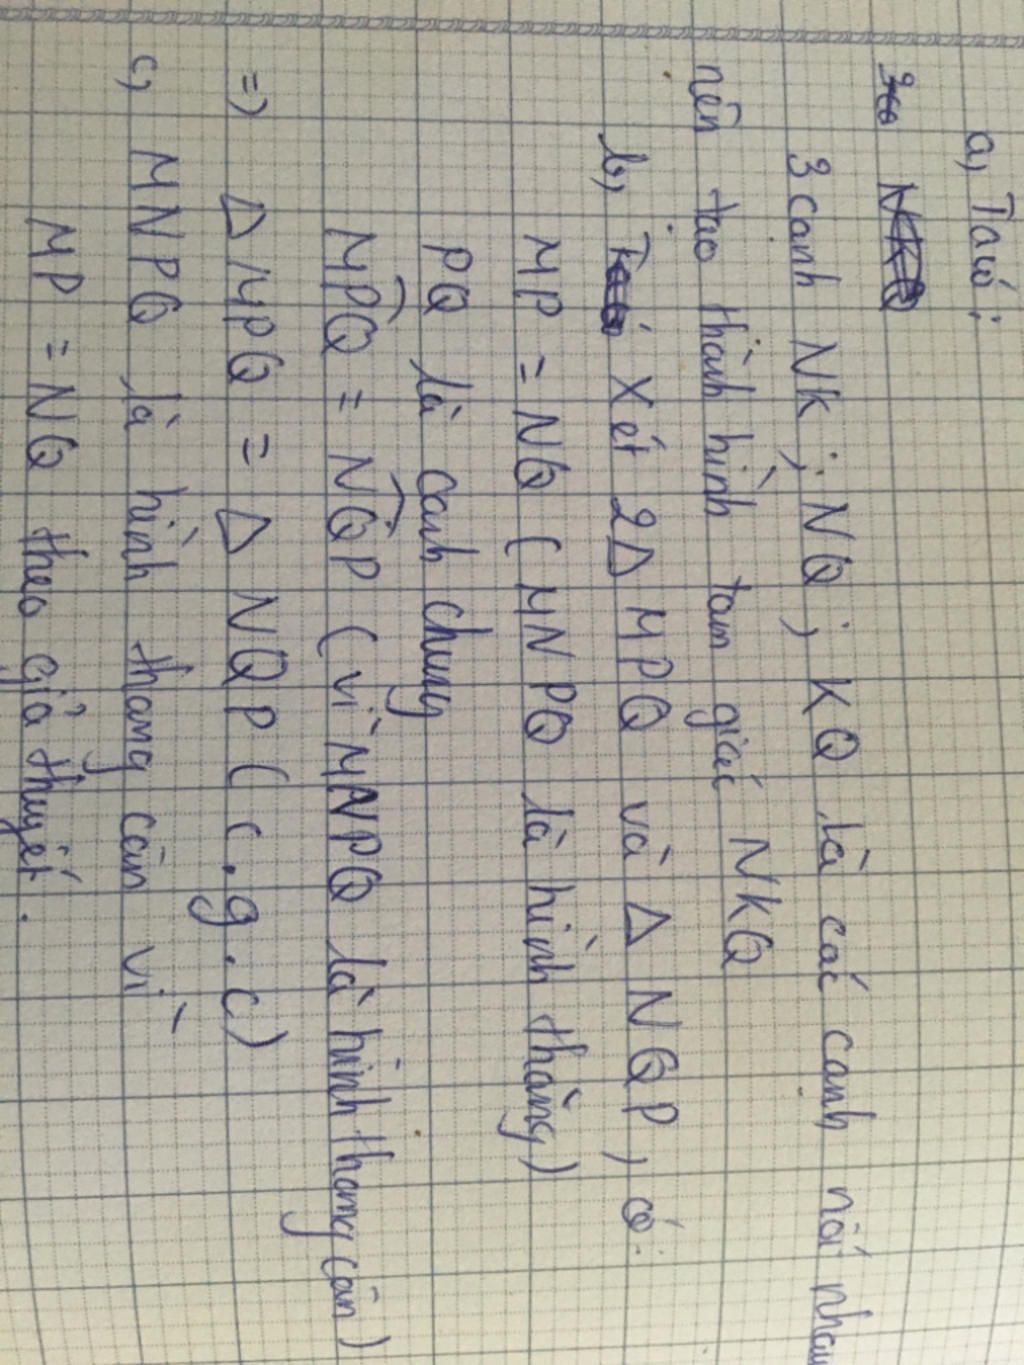 a, Ta có:
3 cạnh NK; NQ; KQ là các cạnh nối nhau
nên tạo thành hình tam giác NKQ
b, Xét 2Δ MPQ và Δ NQP, có:
MP = NQ (MNPQ là hình thằng)
PQ là canh chung
MPQ = NQP (vì MNPQ là hình thang cân)
=> Δ MPQ = Δ NQP (c.g.c)
c, MNPQ là hình thang cân vì
MP = NQ theo giả thuyết.